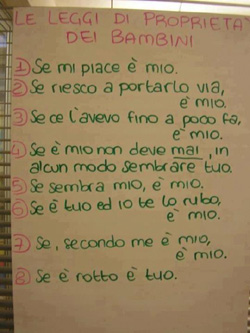 LE LEGGI DI PROPRIETÀ
DEI BAMBINI
1) Se mi piace è mio.
2) Se riesco a portarlo via,
è mio.
3) Se ce l'avevo fino a poco fa,
è mio.
4) Se è mio non deve mai, in
alcun modo sembrare tuo.
5) Se sembra mio, è mio.
6) Se è tuo ed io te lo rubo,
è mio.
7) Se, secondo me è mio,
è mio.
8) Se è rotto è tuo.